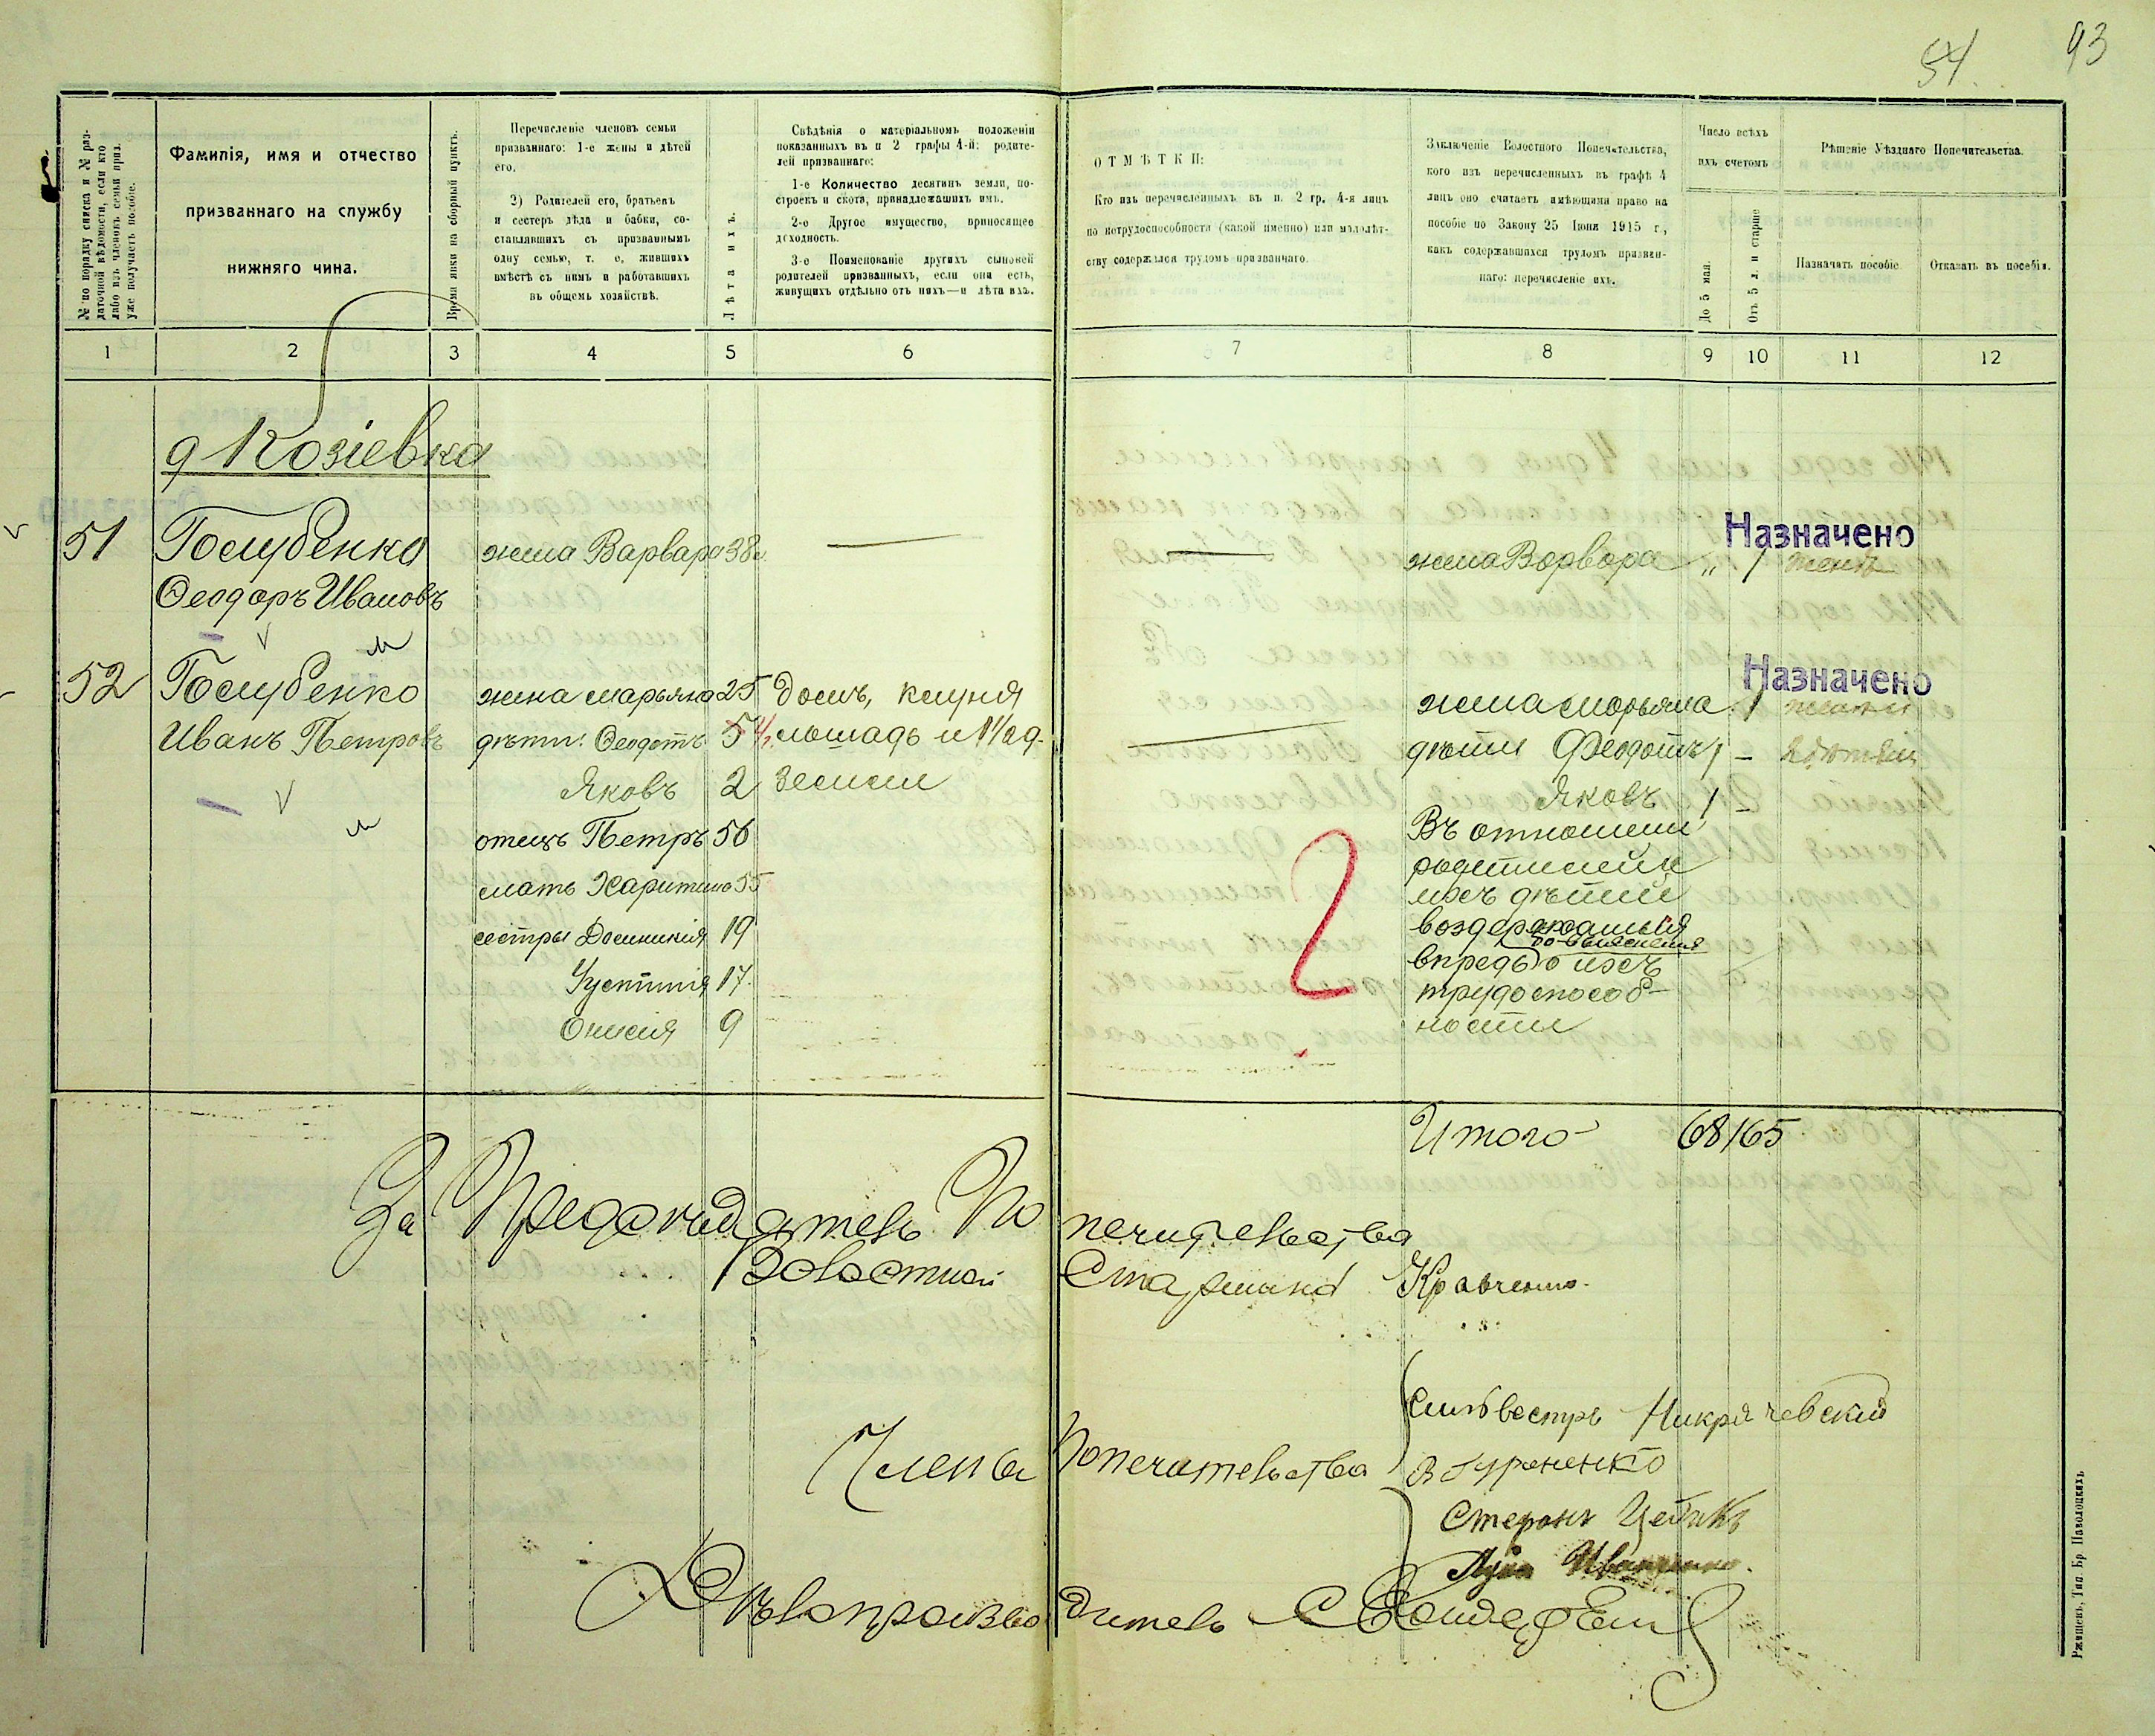 54
93
№ по порядку списка и № раз-
даточной вѣдомости, если кто
либо изъ членовъ семьи приз.
уже получаетъ пособіе.
Фамилія, имя и отчество
призваннаго на службу
нижняго чина.
Время явки на сборный пунктъ.
Перечисленіе членовъ семьи
призваннаго: 1-е жены и дѣтей
его.
2) Родителей его, братьевъ
и сестеръ дѣда и бабки, со-
ставлявшихъ съ призваннымъ
одну семью, т. е, жившихъ
вмѣстѣ съ нимъ и работавшихъ
въ общемъ хозяйствѣ.
Лѣта ихъ.
Свѣдѣнія о матеріальномъ положеніи
показанныхъ въ п 2 графы 4-й: родите-
лей призваннаго:
1-е Количество десятинъ земли, по-
строекъ и скота, принадлежащихъ имъ.
2-е Другое имущество, приносящее
доходность.
3-е Поименованіе другихъ сыновей
родителей призванныхъ, если они есть,
живущихъ отдѣльно отъ нихъ—и лѣта ихъ.
ОТМѢТКИ:
Кто изъ перечисленныхъ въ п. 2 гр. 4-я лицъ
по нетрудоспособности (какой именно) или малолѣт-
ству содержался трудомъ призваннаго.
Заключеніе Волостного Попечительства,
кого изъ перечисленныхъ въ графѣ 4
лицъ оно считаетъ имѣющими право на
пособіе по Закону 25 Іюня 1915 г.,
какъ содержавшихся трудомъ призван-
наго: перечисленіе ихъ.
Число всѣхъ
ихъ счетомъ
До 5 мая.
Отъ 5 л. и старше
Рѣшеніе Уѣзднаго Попечительства.
Назначить пособіе
Отказать въ пособіи.
1 2 3 4 5 6 7 8 9 10 11 12
д Козіевка
51 Голубенко жена Варвара 38 жена Варвара „ 1 Назначено женѣ
Ѳеодоръ Ивановъ
52 Голубенко жена Марьяна 25 домъ, клуня жена Марьяна 1 Назначено
Иванъ Петровъ дѣти: Ѳеодотъ 5 лошадь и дѣти Ѳеодотъ 1 –
Яковъ 2 земли Яковъ 1 –
отецъ Петръ 56 Въ отношеніи
мать Харитина 55 родителей и
ихъ дѣтей
сестры Домникія 19 воздержаться
до выясненія
впредь о ихъ
Устинія 17. трудоспособ-
Онисія 9 ности
Итого 68 165
За Предсѣдатель Попечительства
Волостной Старшина Кравченко.
Сильвестръ
Члены Попечительства
Лука
Дѣлопроизводитель
Ржищевъ, Тип. Бр Наволоцкихъ